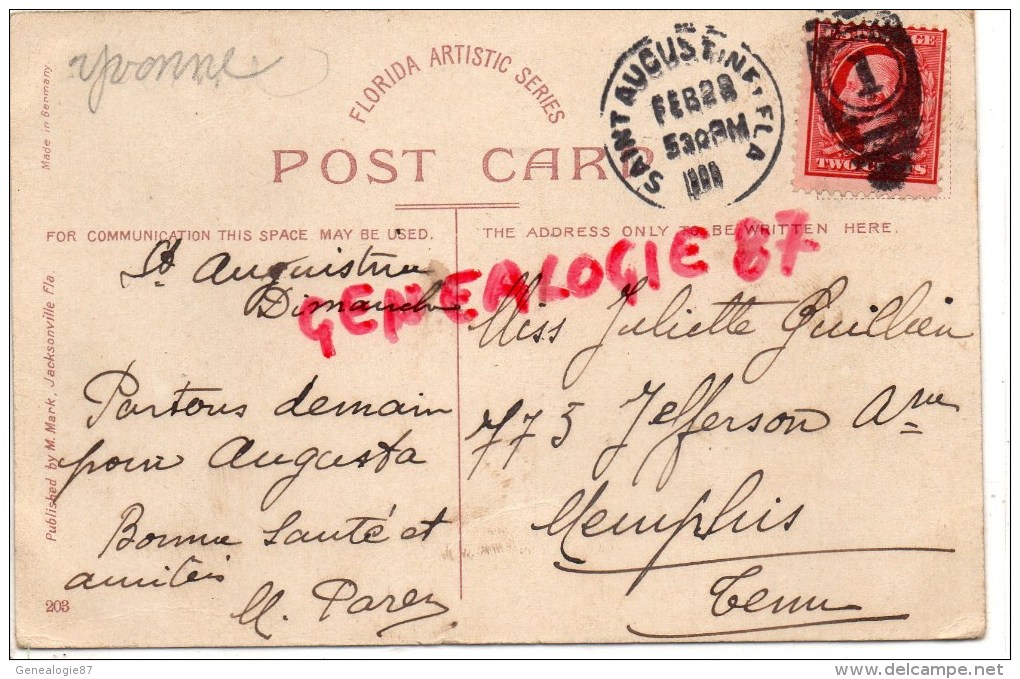 yvonne
Made in Germany
FLORIDA ARTISTIC SERIES
POST CARD
SAINT AUGUSTINE, FLA
FEB 28
530 PM
1
TWO CENTS
FOR COMMUNICATION THIS SPACE MAY BE USED.
THE ADDRESS ONLY TO BE WRITTEN HERE.
GENEALOGIE 87
St Augustine
Dimanche
Partons demain
pour Augusta
Bonne Santé et
amitiés
M. Parez
Miss Juliette Quillien
775 Jefferson Ave
Memphis
Tenn
Published by M. Mark, Jacksonville Fla.
203
Genealogie87
www.delcampe.net